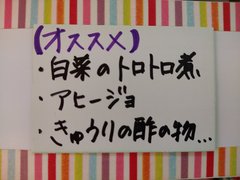 【オススメ】
・白菜のトロトロ煮
・アヒージョ
・きゅうりの酢の物...